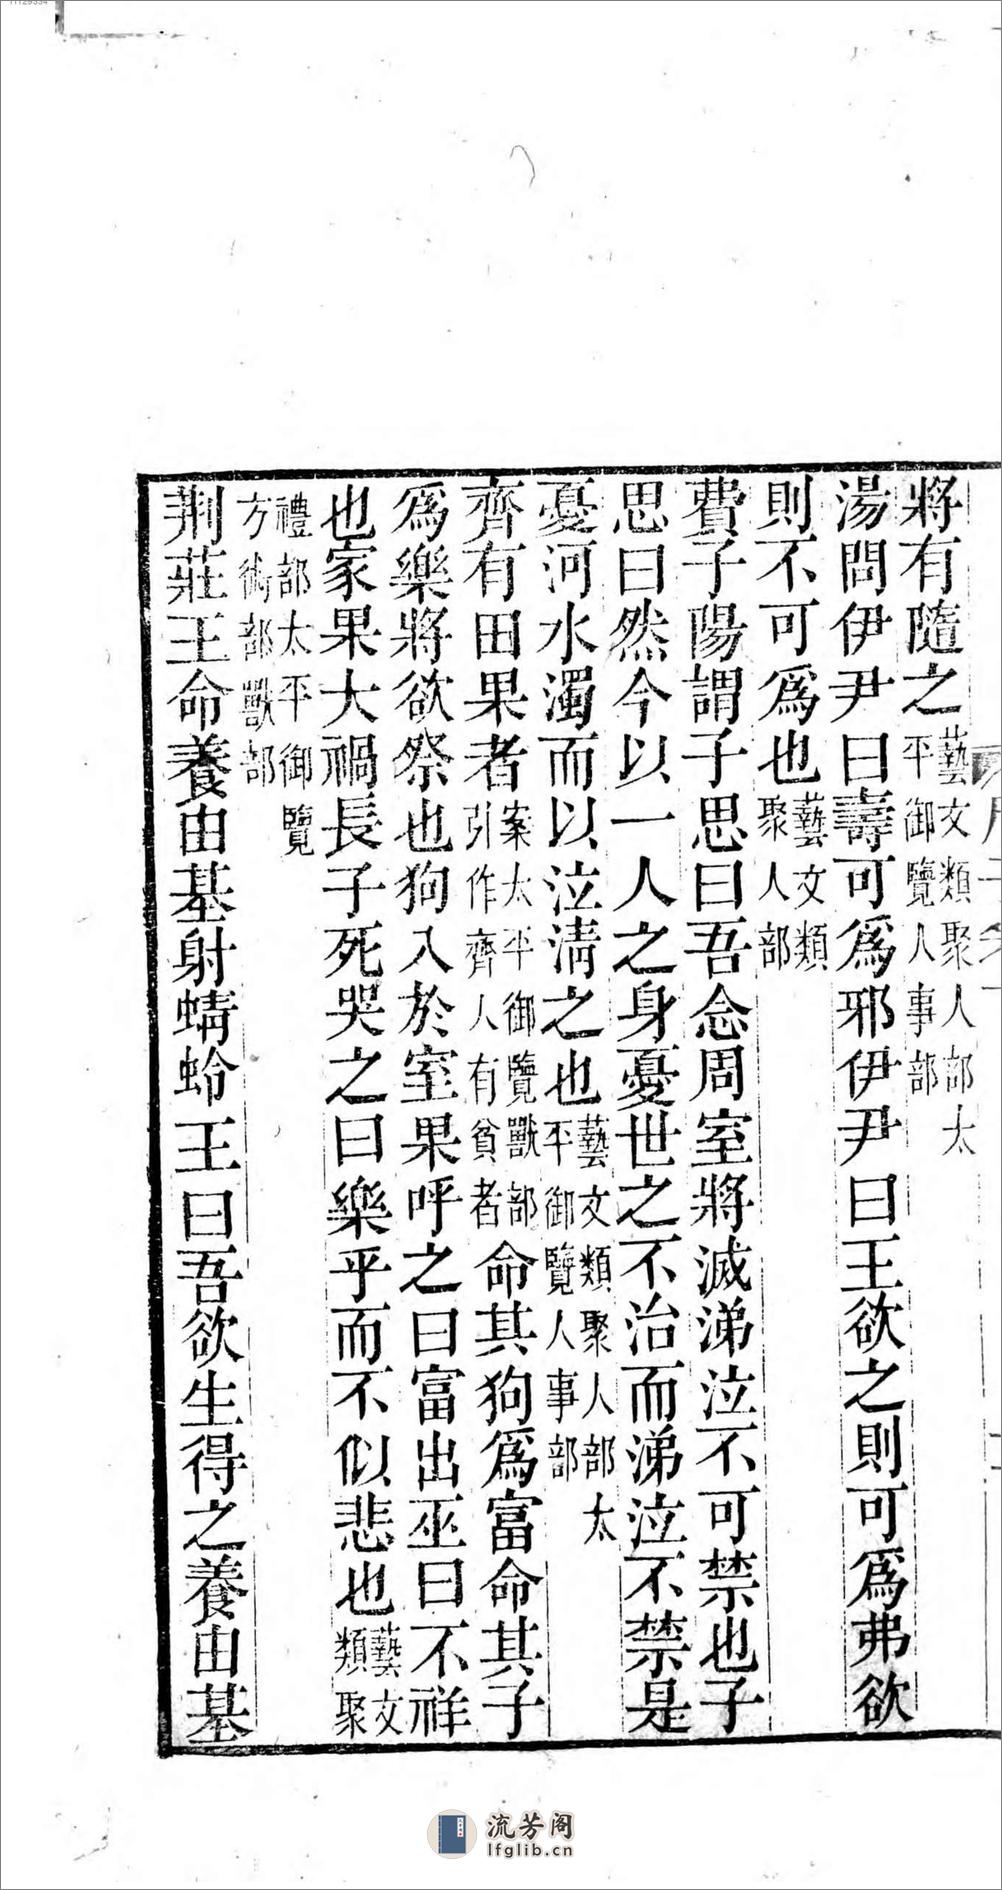 11129334
將有隨之藝文類聚人部太平御覽人事部
湯問伊尹曰壽可爲邪伊尹曰王欲之則可爲弗欲
則不可爲也藝文類聚人部
費子陽謂子思曰吾念周室將滅涕泣不可禁也子
思曰然今以一人之身憂世之不治而涕泣不禁是
憂河水濁而以泣淸之也藝文類聚人部太平御覽人事部
齊有田果者案太平御覽獸部引作齊人有貧者命其狗爲富命其子
爲樂將欲祭也狗入於室果呼之曰富出巫曰不祥
也家果大禍長子死哭之曰樂乎而不似悲也藝文類聚
禮部太平御覽方術部獸部
荆莊王命養由基射蜻蛉王曰吾欲生得之養由基
流芳阁
lfglib.cn